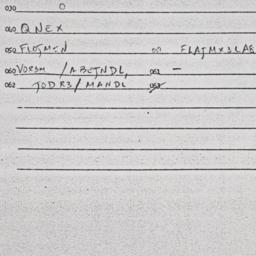 030 O
040 QNEX
050 FLOJMEN FLAJMXSLAB
060 VORSM / ABETNDL, 061 –
062 JODR3 / MANDL 063